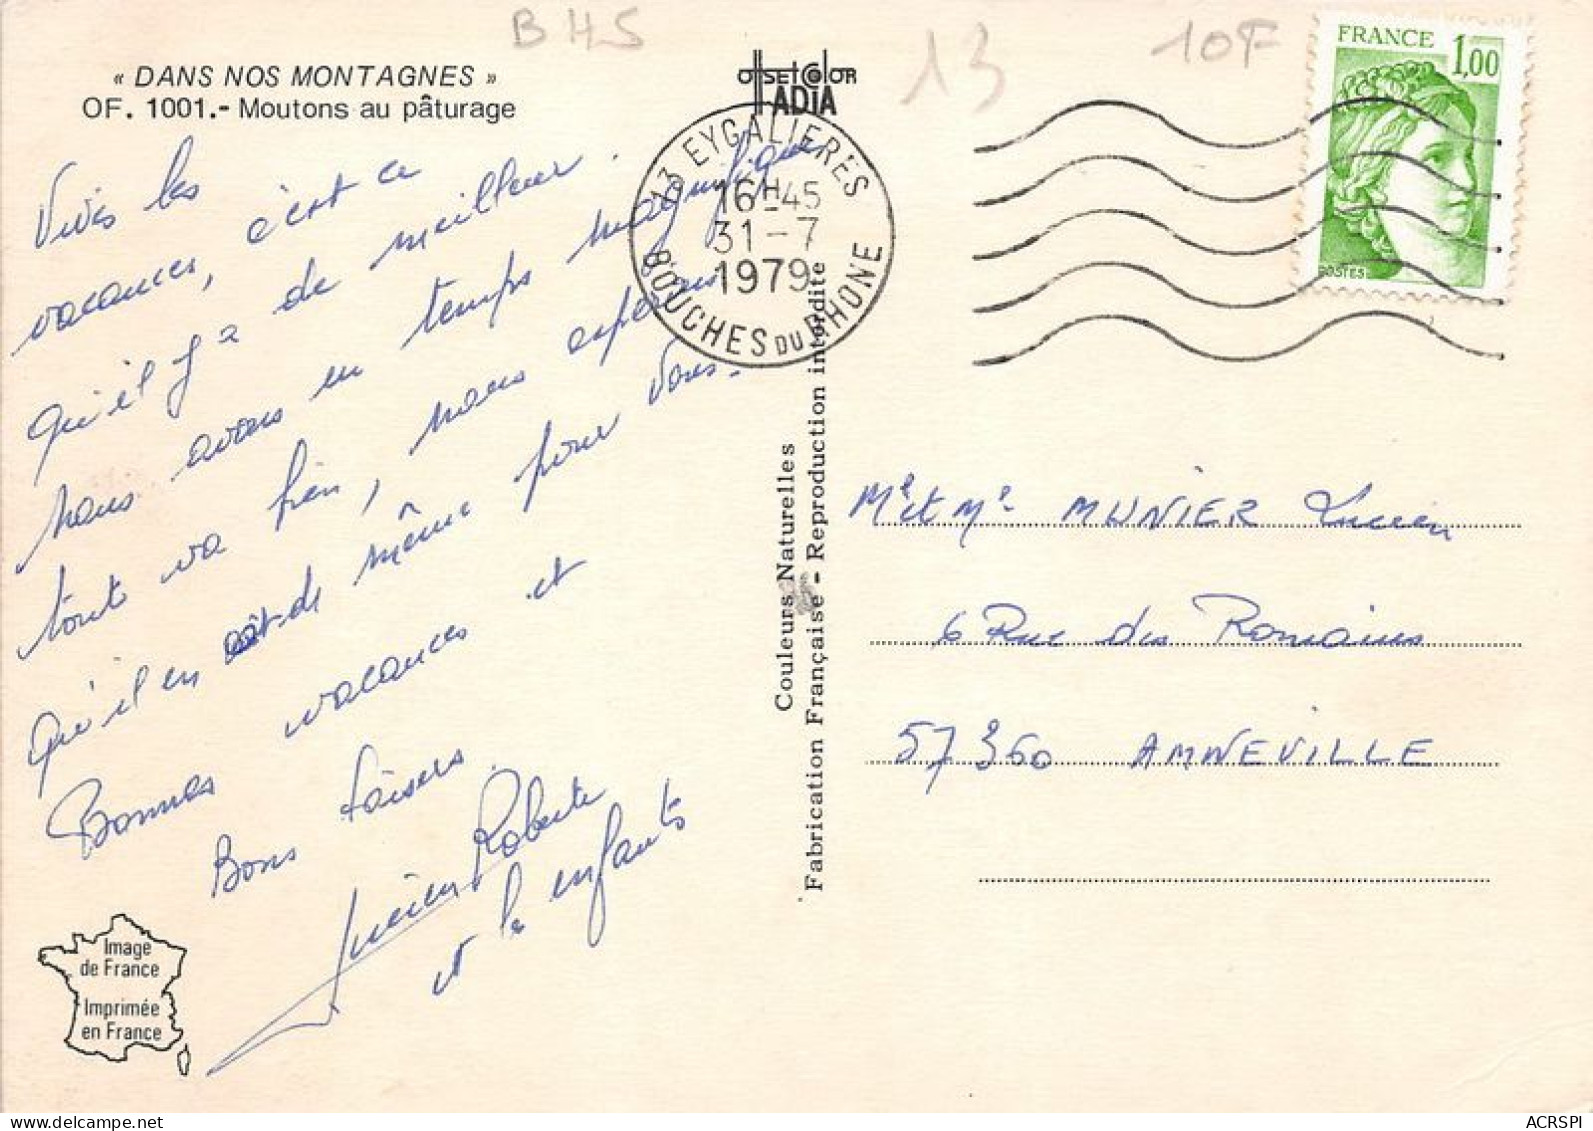 B H5
13
10F
« DANS NOS MONTAGNES »
OF. 1001.- Moutons au pâturage
OFFSET COLOR
IADIA
FRANCE 1,00
POSTES
13 EYGALIERES
16H45
31-7
1979
BOUCHES DU RHONE
Vives les
vacances, c'est ce
qu'il y a de meilleur.
nous avons un temps magnifique
tout va bien, nous espérons
qu'il en est de même pour vous.
Bonnes vacances et
Bons baisers
Lucien Roberte
et les enfants
Couleurs Naturelles
Fabrication Française - Reproduction interdite
Mr et Me MUNIER Lucien
6 Rue des Romains
57360 AMNEVILLE
Image
de France
Imprimée
en France
ACRSPI